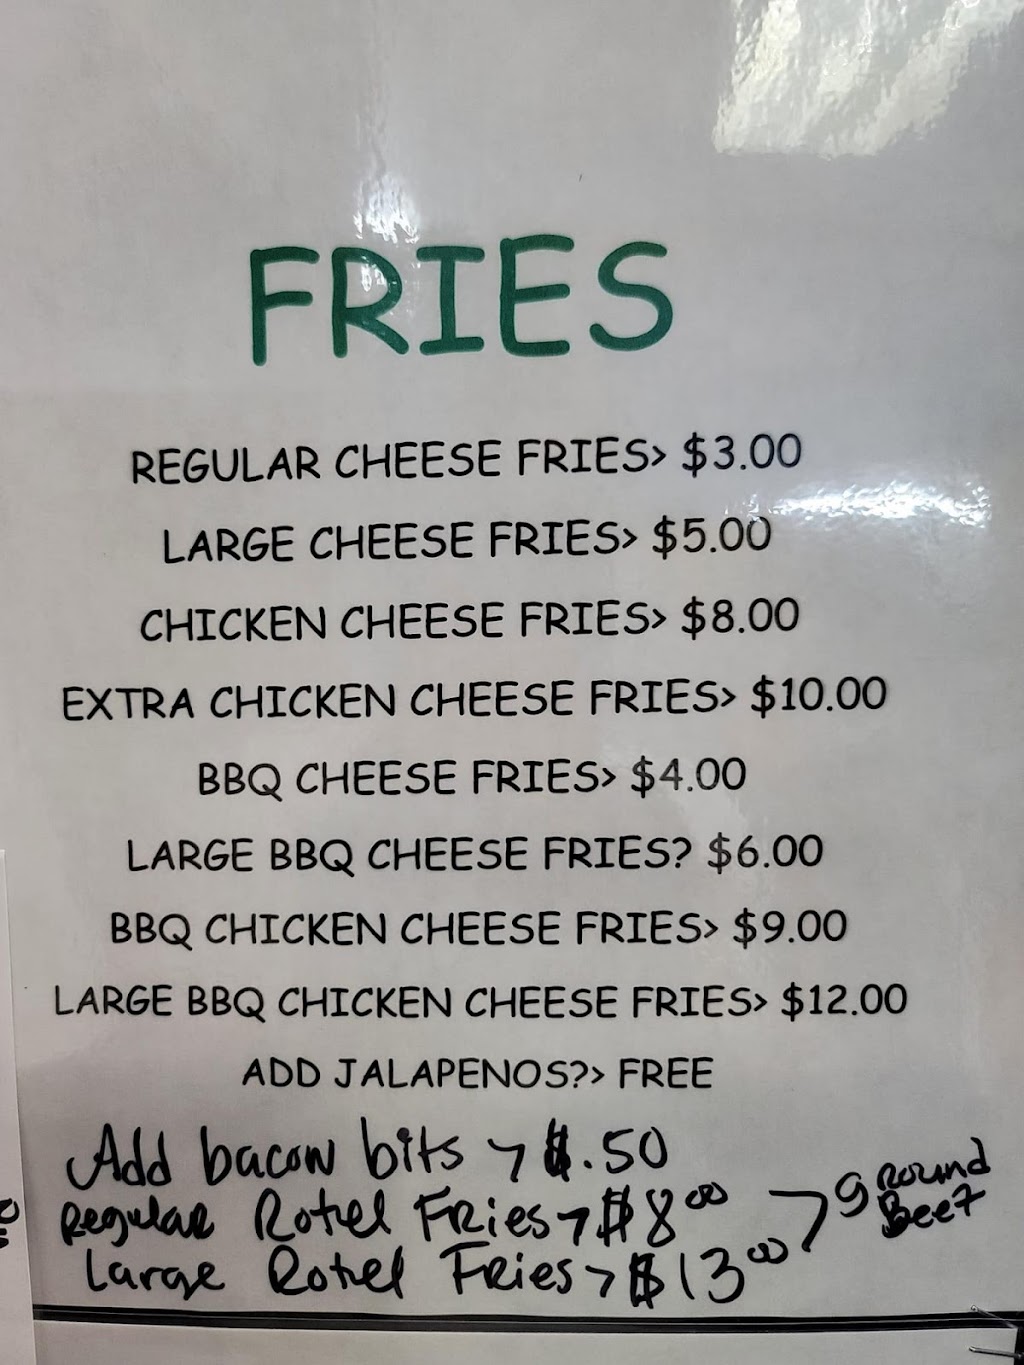 FRIES
REGULAR CHEESE FRIES> $3.00
LARGE CHEESE FRIES> $5.00
CHICKEN CHEESE FRIES> $8.00
EXTRA CHICKEN CHEESE FRIES> $10.00
BBQ CHEESE FRIES> $4.00
LARGE BBQ CHEESE FRIES? $6.00
BBQ CHICKEN CHEESE FRIES> $9.00
LARGE BBQ CHICKEN CHEESE FRIES> $12.00
ADD JALAPENOS?> FREE
Add bacon bits > $.50
Regular Rotel Fries > $8.00
Large Rotel Fries > $13.00
Ground
Beef